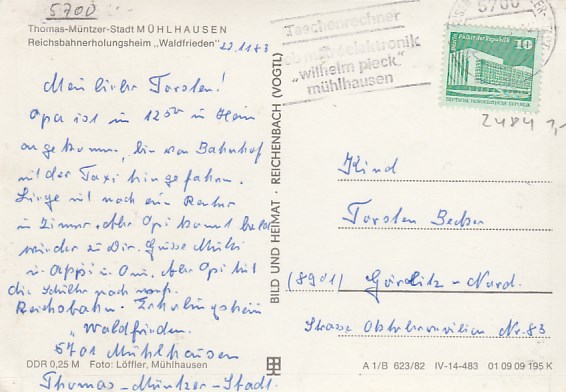 5700
Thomas-Müntzer-Stadt MÜHLHAUSEN
Reichsbahnerholungsheim „Waldfrieden"
22.11.83
Mein lieber Torsten!
Opa ist um 12 50 in Heim
angekommen, bin vom Bahnhof
mit der Taxi hingefahren.
Liege mit noch ein
in Zimmer. Aber Opi kommt bald
wieder zu Dir. Grüsse Mutti
u. Omi. Aber Opi hat
die noch
Reichsbahn-Erholungsheim
„Waldfrieden.
5701 Mühlhausen
Thomas-Müntzer-Stadt.
DDR 0,25 M Foto: Löffler, Mühlhausen
BILD UND HEIMAT · REICHENBACH (VOGTL)
Taschenrechner
mikroelektronik
„wilhelm pieck"
mühlhausen
5700
Palast der Republik
10
DEUTSCHE DEMOKRATISCHE REPUBLIK
2484 1,-
Kind
Torsten Becker
(8901) Görlitz-Nord.
Strasse Nr. 83
A 1/B 623/82 IV-14-483 01 09 09 195 K